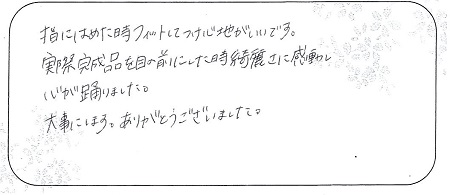 指にはめた時フィットしてつけ心地がいいです。
実際完成品を目の前にした時綺麗さに感動し
心が踊りました。
大事にします。ありがとうございました。